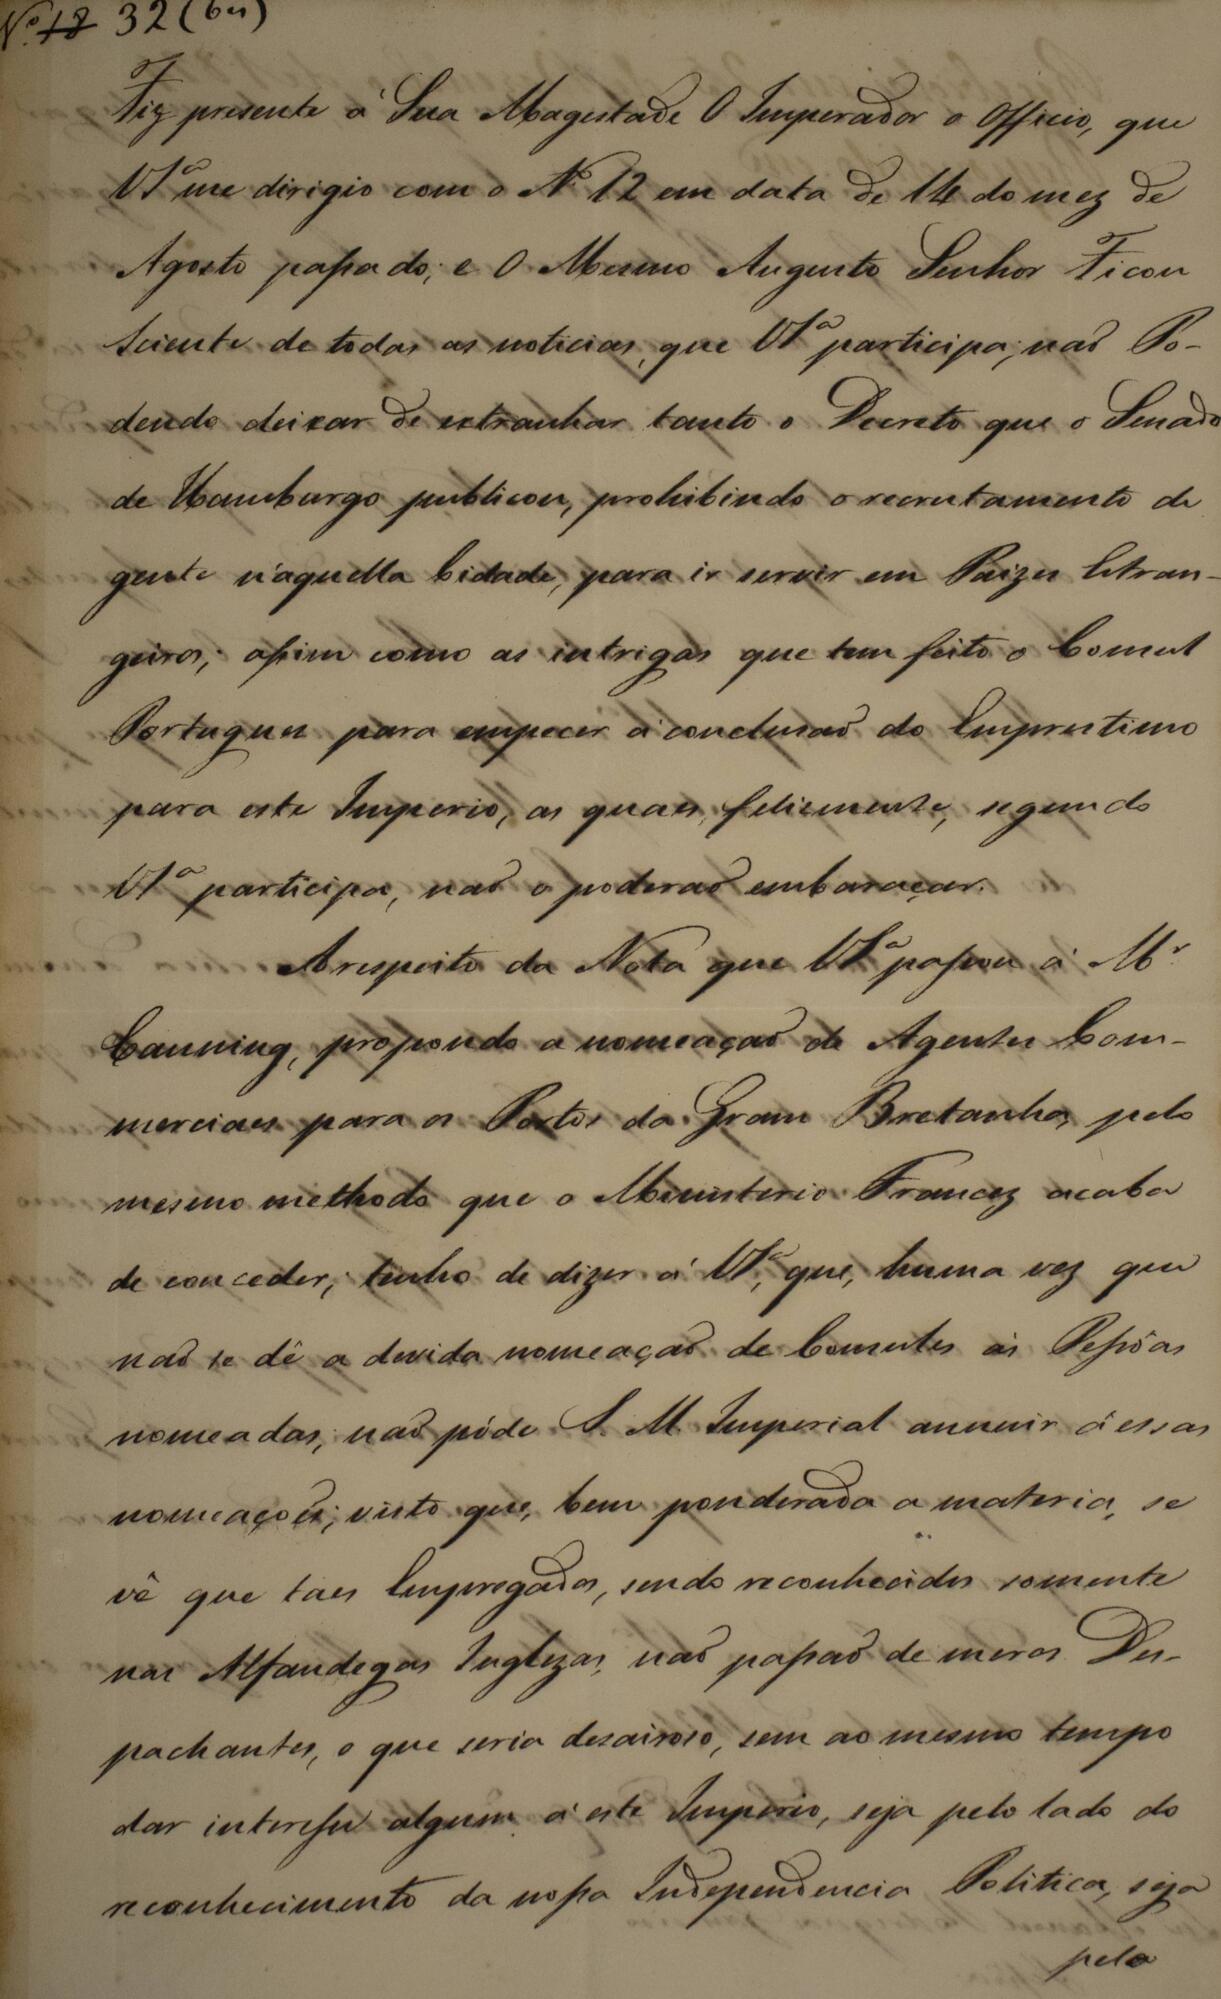 Nº 18 32 (bis)
Fiz presente á Sua Magestade O Imperador o Officio, que
VSª me dirigio com o Nº 12 em data de 14 do mez de
Agosto passado; e O Mesmo Augusto Senhor Ficou
sciente de todas as noticias, que VSª participa; naõ Po-
dendo deixar de extranhar tanto o Decreto que o Senado
de Hamburgo publicou, prohibindo o recrutamento de
gente n'aquella Cidade, para ir servir em Paizes Estran-
geiros; assim como as intrigas que tem feito o Consul
Portuguez para empecer á conclusaõ do Emprestimo
para este Imperio, as quaes, felizmente, segundo
VSª participa, naõ o poderaõ embaraçar.
A respeito da Nota que VSª passou á Mr
Canning, propondo a nomeaçaõ de Agentes Com-
merciaes para os Portos da Gram Bretanha, pelo
mesmo methodo que o Ministerio Francez acaba
de conceder; tenho de dizer á VSª, que, huma vez que
naõ se dê a devida nomeaçaõ de Consules ás Pessôas
nomeadas, naõ póde S. M. Imperial annuir á essas
nomeações; visto que, bem ponderada a materia, se
vê que taes Empregados, sendo reconhecidos somente
nas Alfandegas Inglezas, naõ passaõ de meros Des-
pachantes, o que seria desairoso, sem ao mesmo tempo
dar interesse algum á este Imperio, seja pelo lado do
reconhecimento da nossa Independencia Politica, seja
pelo